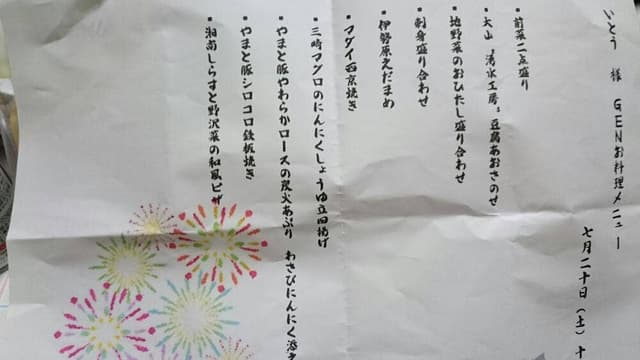 いとう 様 GENお料理メニュー
七月二十日(土) 十
・前菜二点盛り
・大山“清水工房”豆腐あおさのせ
・地野菜のおひたし盛り合わせ
・刺身盛り合わせ
・伊勢原えだまめ
・マダイ西京焼き
・三崎マグロのにんにくしょうゆ立田揚げ
・やまと豚やわらかロースの炭火あぶり わさびにんにく添え
・やまと豚シロコロ鉄板焼き
・湘南しらすと野沢菜の和風ピザ